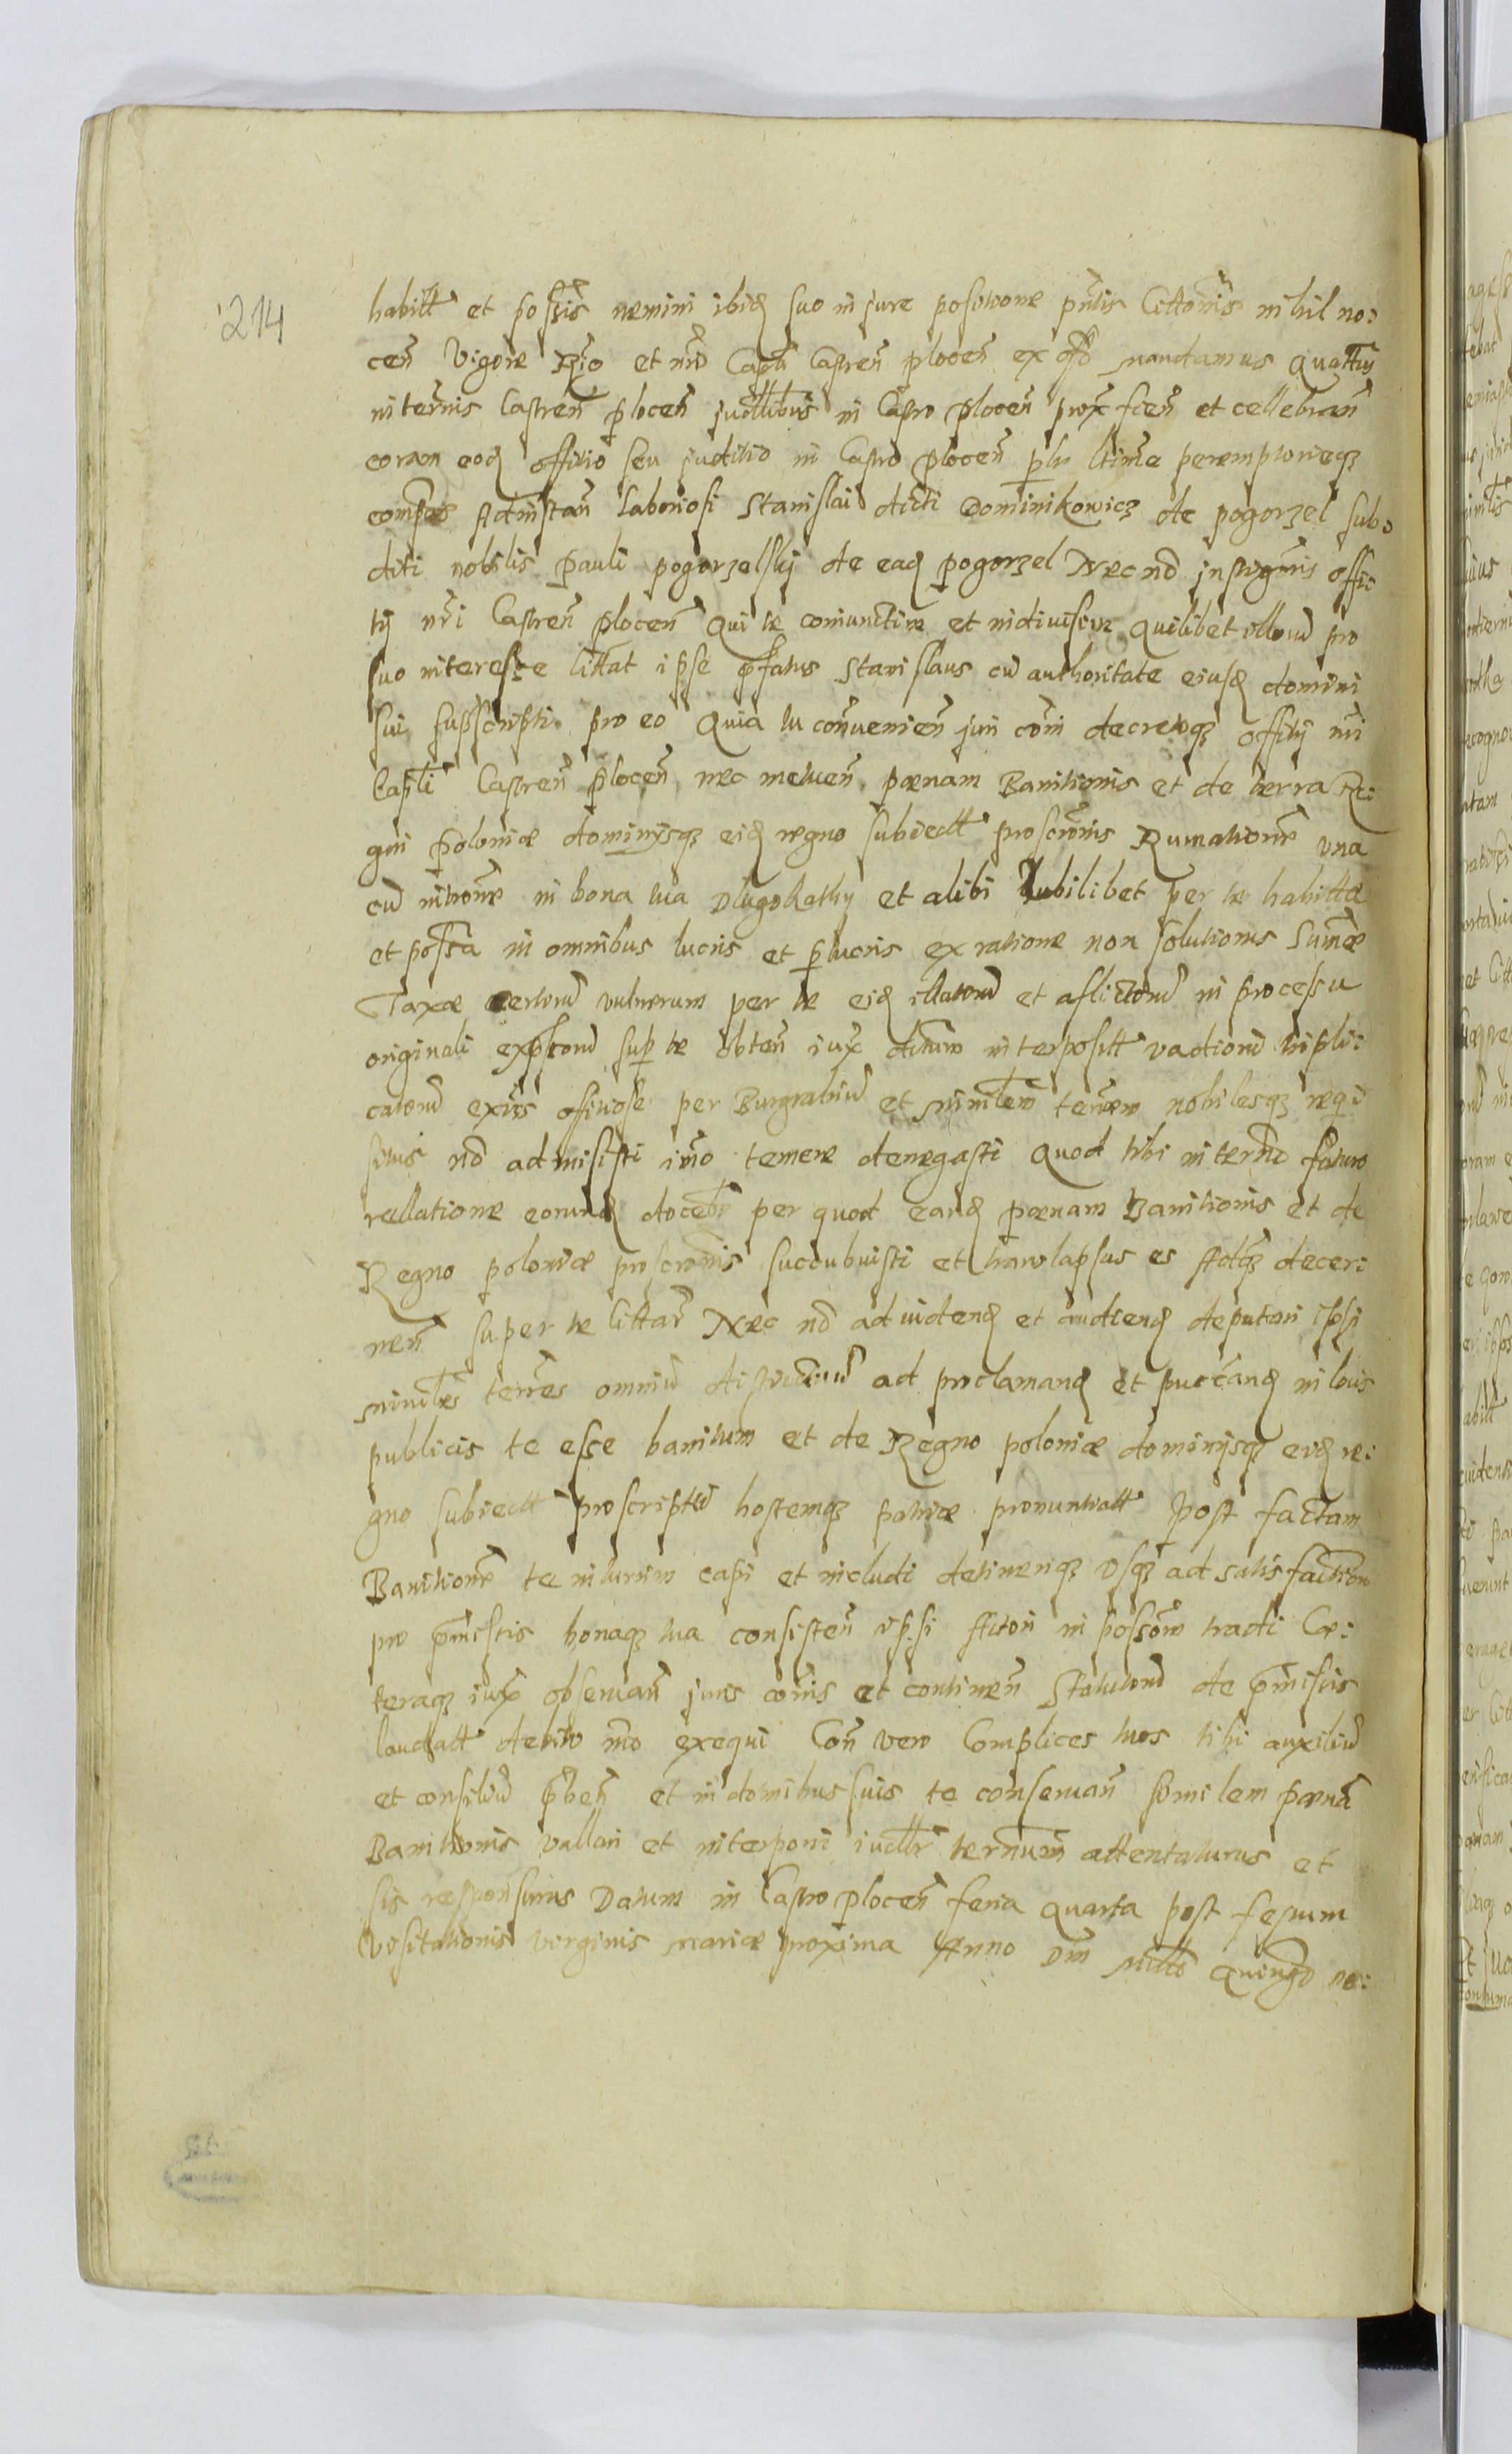 214
habitt et possis nemini ibid suo in jure positione pntis Cittonis nihil no:
cen Vigore Regio et nro Capti Castren plocen ex offo mandamus quattus
in ternis Castren plocen judllibus in Castro plocen prox fien et cellebran
coram eod offitio seu juditio in Castro plocen pltr ltime peremptorieqz
compas Ad instan laboriosi Stanislai dicti Dominikowicz de pogorzel sub:
diti nobilis pauli pogorzelskij de ead pogorzel Nec no instigtoris offi:
tij nri Castren plocen Qui te coniunctim et indiuisim quilibet illorum pro
suo interesse littat ipse pfatus Stanislaus cu authoritate eiusd domini
sui supscripti pro eo Quia tu conuenien juri comi decretoqz offitij nri
Capli Castren plocen nec metuen pœnam Banitionis et de terra Re:
gni poloniæ dominijsqz eid regno subiectt proscronis Rumationem vna
cu intione in bona tua Dlugokathy et alibi vbilibet per te habitta
et possa in omnibus lucris et plucris ex ratione non solutionis Summæ
Taxæ certorum vulnerum per te eid illatorum et aflictorum in processu
originali expssorum sup te obten iux ditum interpositt vadiorum tripli:
catorum exijs offitiose per Burgrabium et minrlem terrem nobilesqz requi
situs no admisisti imo temere denegasti quod tibi in terno futuro
rellatione eorund docebr per quod eand pœnam Banitionis et de
Regno poloniæ proscronis succubuisti et translapsus es Adqz decer:
nen super te littar Nec no ad uidend et audiend deputari ipsi
minrles terres omnium districtuum ad proclamand et puccand in locis
publicis te esse banitum et de Regno poloniæ dominijsqz eid re:
gno subiectt proscriptu hostemqz patriæ pronuntiatt post factam
Banitionem te iniurium capi et includi detineriqz vsqz ad satisfactione
pro pmissis bonaqz tua consisten ipsi Actori in possone tradi Cæ:
teraqz iux obseruan juris comis et continen Statutorum de pmissis
laudatt debito mo exequi Con vero Complices tuos tibi auxilium
et consilium pben et in domibus suis te conseruan similem pœna
Banitionis vallari et interponi iudllr ternum attentaturus et
sis responsurus Datum in Castro plocen feria quarta post festum
visitationis virginis mariæ proxima Anno Dni Millo Quingo no: